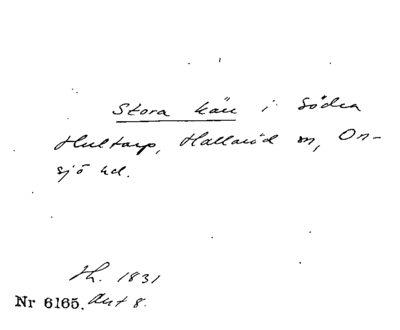 Stora kärr i Södra
Hultarp, Hallaröd sn, On-
sjö hd.
Th. 1831
Nr 6165. Akt 8.